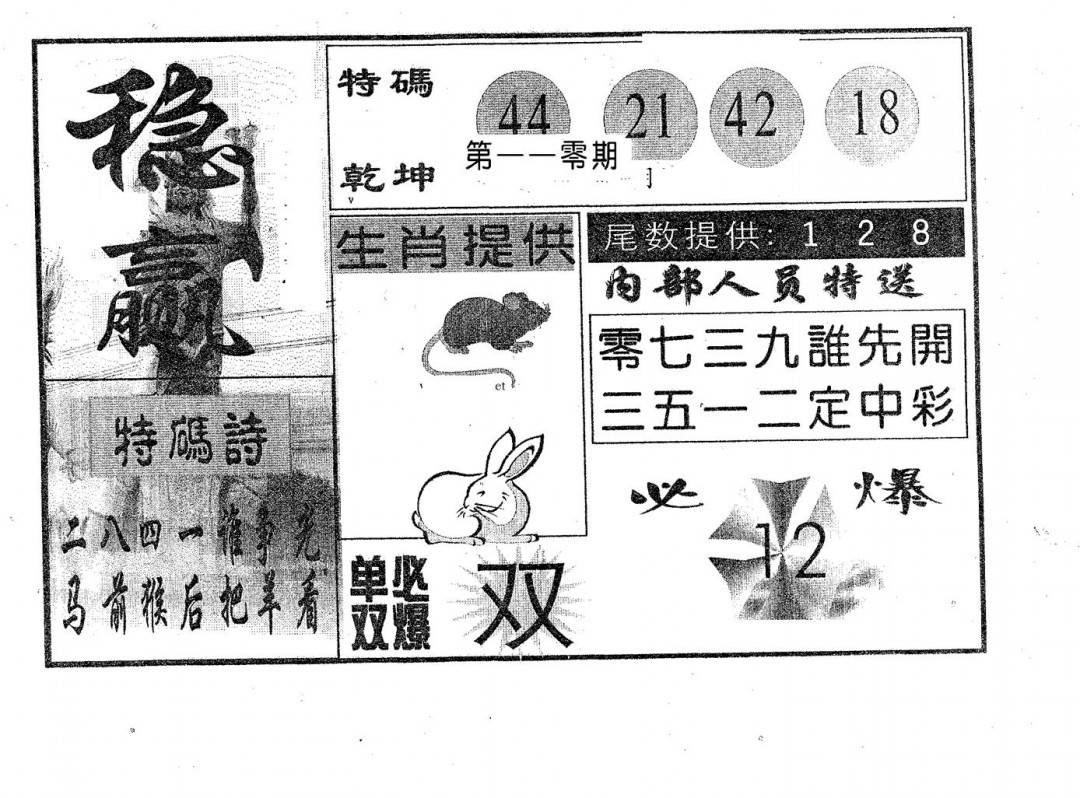 稳赢
特碼
乾坤
44 21 42 18
第一一零期
生肖提供
et
尾数提供: 1 2 8
内部人员特送
零七三九誰先開
三五一二定中彩
特碼詩
二八四一谁争先
马前猴后把羊看
单双必爆
双
必爆
12